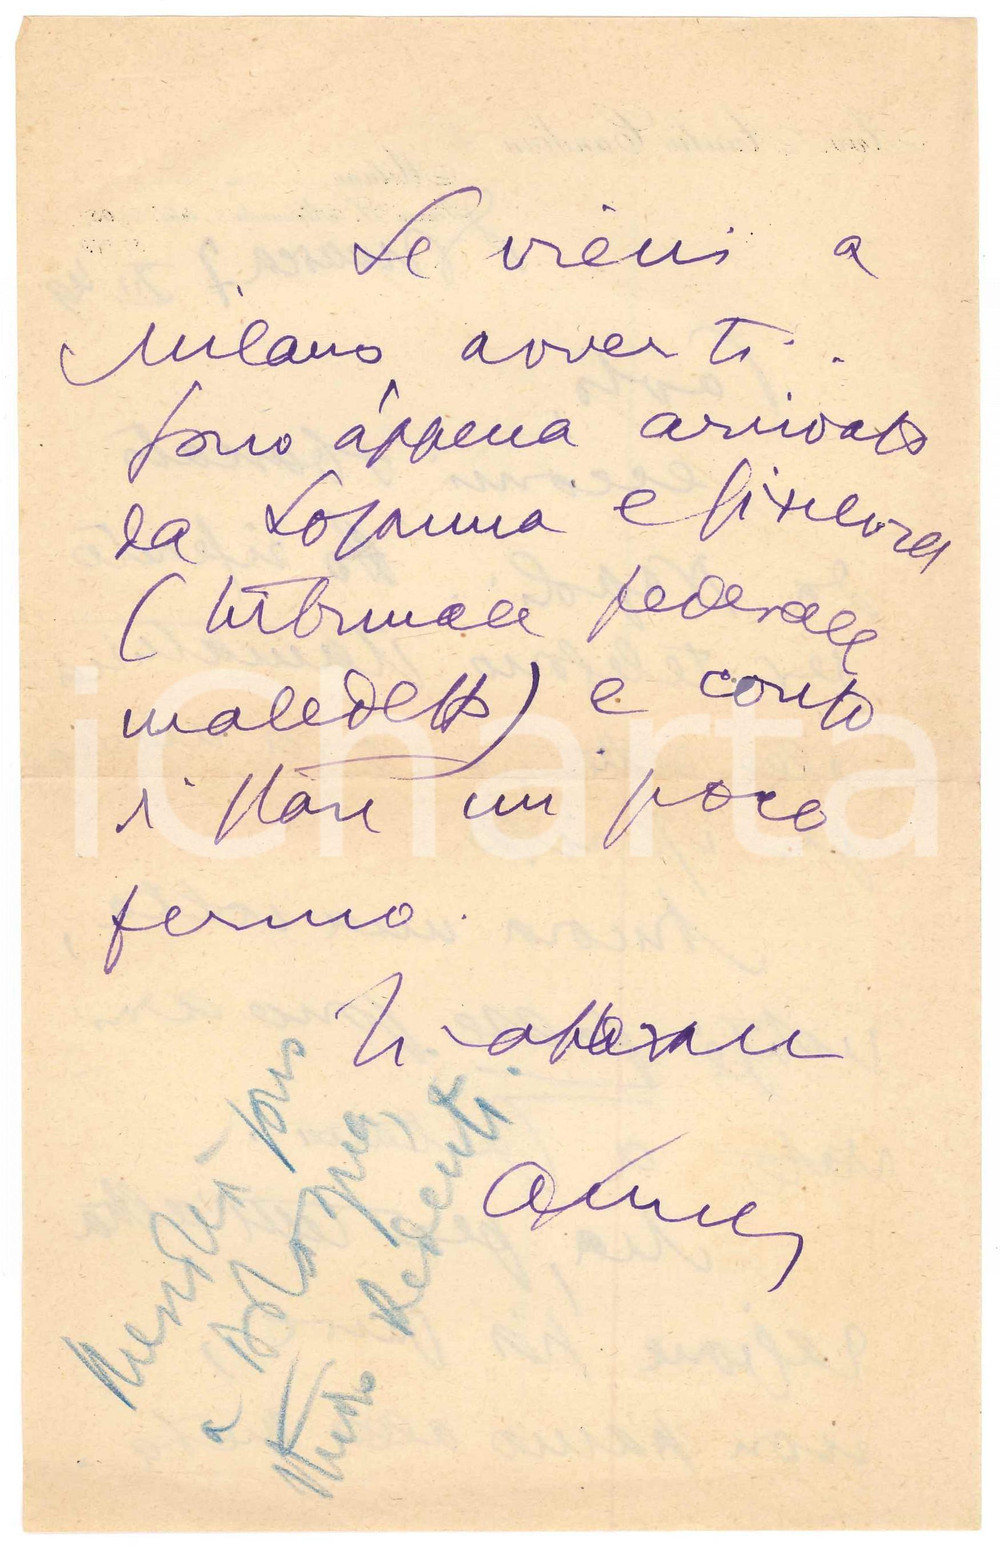 Se vieni a
Milano avverti.
Sono appena arrivato
da Losanna e Ginevra
(tribunale federale
maledetto) e conto
di stare un poco
fermo.
Ti abbraccio
Martedì sono
a Bologna
Redenti.
iCharta